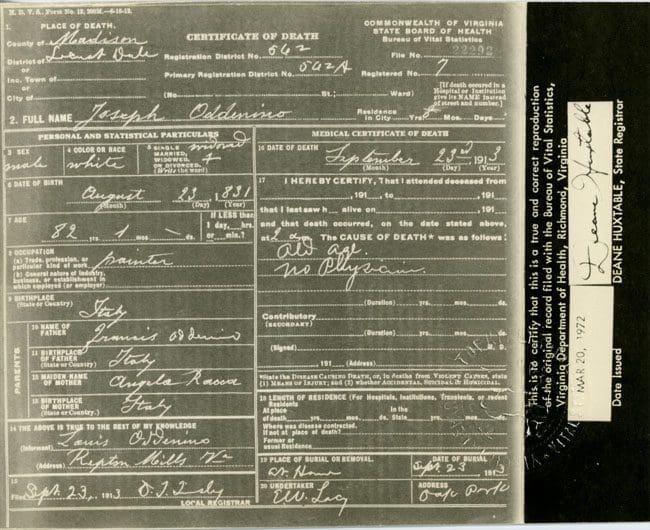 H. D. V. A., Form No. 12, 200M.—6-15-12.
1. PLACE OF DEATH.
County of Madison
District of Locust Dale
or
Inc. Town of
or
City of
CERTIFICATE OF DEATH
Registration District No. 562
Primary Registration District No. 562A
(No. St.; Ward)
COMMONWEALTH OF VIRGINIA
STATE BOARD OF HEALTH
Bureau of Vital Statistics
File No. 22292
Registered No. 7
[If death occurred in a
Hospital or Institution
give its NAME instead
of street and number.]
2. FULL NAME Joseph Oddenino
Residence
In City Yrs. Mos. Days.
PERSONAL AND STATISTICAL PARTICULARS
3 SEX
male
4 COLOR OR RACE
white
5 SINGLE
MARRIED,
WIDOWED,
OR DIVORCED.
(Write the word)
widowed
6 DATE OF BIRTH
August 23, 1831
(Month) (Day) (Year)
7 AGE
82 yrs. 1 mos. — ds.
If LESS than
1 day, hrs.
or min.?
8 OCCUPATION
(a) Trade, profession, or
particular kind of work
painter
(b) General nature of industry,
business, or establishment in
which employed (or employer)
9 BIRTHPLACE
(State or Country)
Italy
PARENTS
10 NAME OF
FATHER
Francis Oddenino
11 BIRTHPLACE
OF FATHER
(State or Country)
Italy
12 MAIDEN NAME
OF MOTHER
Angela
13 BIRTHPLACE
OF MOTHER
(State or Country)
Italy
14 THE ABOVE IS TRUE TO THE BEST OF MY KNOWLEDGE
(Informant) Louis Oddenino
(Address) Mills Va
15
Filed Sept. 23, 1913
LOCAL REGISTRAR
MEDICAL CERTIFICATE OF DEATH
16 DATE OF DEATH
September 23rd 1913
(Month) (Day) (Year)
17 I HEREBY CERTIFY, That I attended deceased from
, 191 , to , 191
that I last saw h alive on , 191
and that death occurred, on the date stated above,
at m. The CAUSE OF DEATH* was as follows:
Old age.
No Physician.
(Duration) yrs. mos. ds.
Contributory
(SECONDARY)
(Duration) yrs. mos. ds.
(Signed) M. D.
191 (Address)
*State the DISEASE CAUSING DEATH, or, in deaths from VIOLENT CAUSES, state
(1) MEANS OF INJURY; and (2) whether ACCIDENTAL, SUICIDAL or HOMICIDAL.
18 LENGTH OF RESIDENCE (For Hospitals, Institutions, Transients, or recent
Residents
At place In the
of death yrs. mos. ds. State yrs. mos. ds.
Where was disease contracted,
If not at place of death?
Former or
usual Residence
19 PLACE OF BURIAL OR REMOVAL.
At Home
DATE OF BURIAL
Sept. 23 1913
20 UNDERTAKER
E.W. Lacy
ADDRESS
Oak Park
This is to certify that this is a true and correct reproduction
of the original record filed with the Bureau of Vital Statistics,
Virginia Department of Health, Richmond, Virginia
MAR 20, 1972
Date Issued
Deane Huxtable
DEANE HUXTABLE, State Registrar